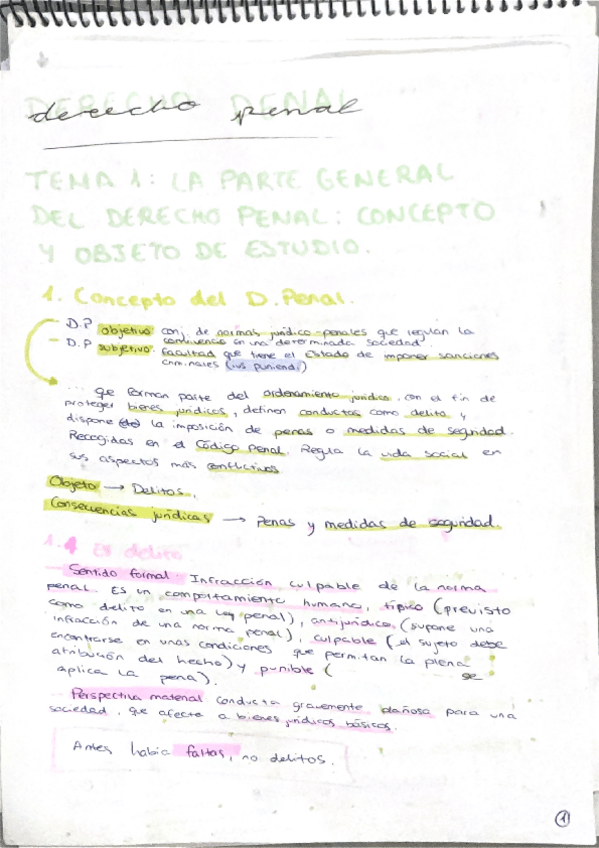 derecho penal
TEMA 1: LA PARTE GENERAL
DEL DERECHO PENAL: CONCEPTO
Y OBJETO DE ESTUDIO.
1. Concepto del D. Penal.
D.P objetivo: conj. de normas jurídico-penales que regulan la
convivencia en una determinada sociedad
D.P subjetivo: facultad que tiene el Estado de imponer sanciones
criminales (ius puniendi)
... que forman parte del ordenamiento jurídico, con el fin de
proteger bienes jurídicos, definen conductas como delito y
dispone la imposición de penas o medidas de seguridad.
Recogidas en el Código Penal. Regla la vida social en
sus aspectos más conflictivos
Objeto → Delitos,
Consecuencias jurídicas → Penas y medidas de seguridad.
1.1 El delito
Sentido formal: Infracción culpable de la norma
penal. Es un comportamiento humano, típico (previsto
como delito en una ley penal), antijurídico (supone una
infracción de una norma penal), culpable (el sujeto debe
encontrarse en unas condiciones que permitan la plena
atribución del hecho) y punible ( se
aplica la pena).
Perspectiva material: conducta gravemente dañosa para una
sociedad, que afecte a bienes jurídicos básicos.
Antes había faltas, no delitos.
1